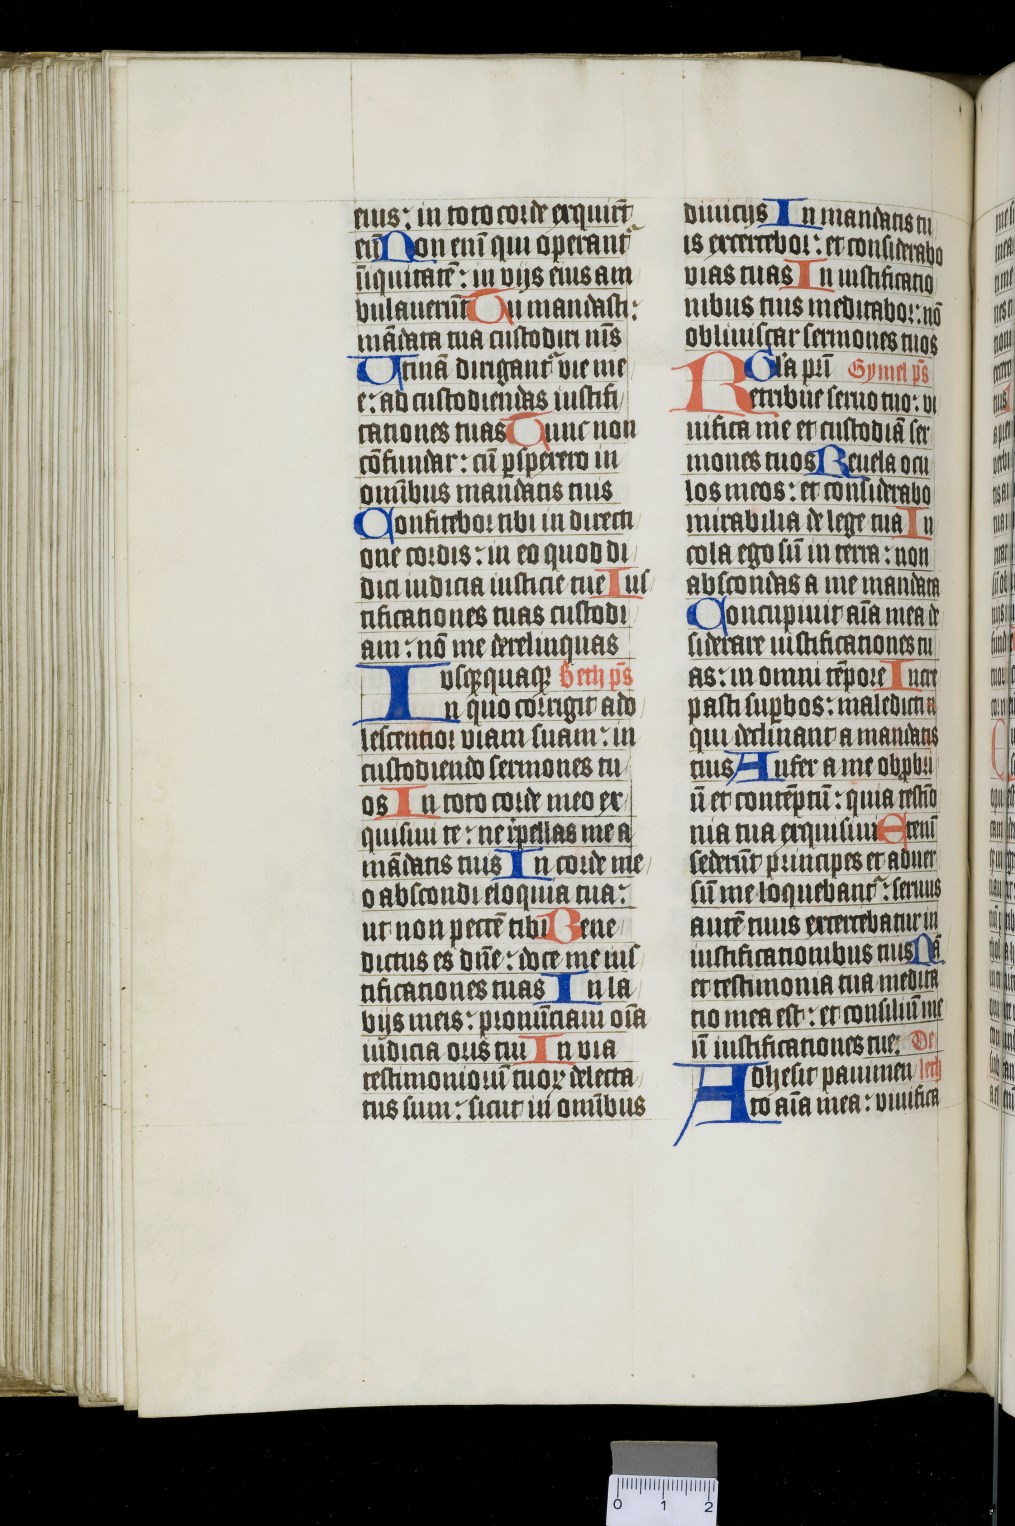 eius: in toto corde exquirūt
eū Non enī qui operantᷣ
īiquitatē: in vijs eius am
bulauerūt Tu mandasti:
mādata tua custodiri nīs
Utinā diriganᷣt vie me
e: ad custodiendas iustifi
cationes tuas Tunc non
cōfundar: cū ꝑspexero in
omībus mandatis tuis
Confitebor tibi in directi
one cordis: in eo quod di
dici iudicia iusticie tue Ius
tificationes tuas custodi
am: nō me derelinquas
usqꝫquaqꝫ Beth p̄s
In quo corrigit ado
lescentior viam suam: in
custodiendo sermones tu
os In toto corde meo ex
quisiui te: ne repellas me a
mādatis tuis In corde me
o abscondi eloquia tua:
ut non peccē tibi Bene
dictus es dn̄e: doce me ius
tificationes tuas In la
bijs meis: pronūciaui oīa
iudicia oris tui In via
testimoniorū tuoꝝ delecta
tus sum: sicut in omībus
diuicijs In mandatis tu
is exercebor: et considerabo
vias tuas In iustificatio
nibus tuis meditabor: nō
obliuiscar sermones tuos
Gl'a pri Gymel p̄s
Retribue seruo tuo: vi
uifica me et custodiā ser
mones tuos Reuela ocu
los meos: et considerabo
mirabilia de lege tua In
cola ego sū in terra: non
abscondas a me mandata
Concupiuit aīa mea de
siderare iustificationes tu
as: in omni tēpore Incre
pasti suꝑbos: maledicti
qui declinant a mandatis
tuis Aufer a me obꝓbri
ū et contēptū: quia testīo
nia tua exquisiui Etenī
sederūt principes et aduer
sū me loquebantᷣ: seruus
autē tuus exercebatur in
iustificationibus tuis Nā
et testimonia tua medita
tio mea est: et consiliū me
ū iustificationes tue. De
Adhesit pauimen leth
to aīa mea: viuifica